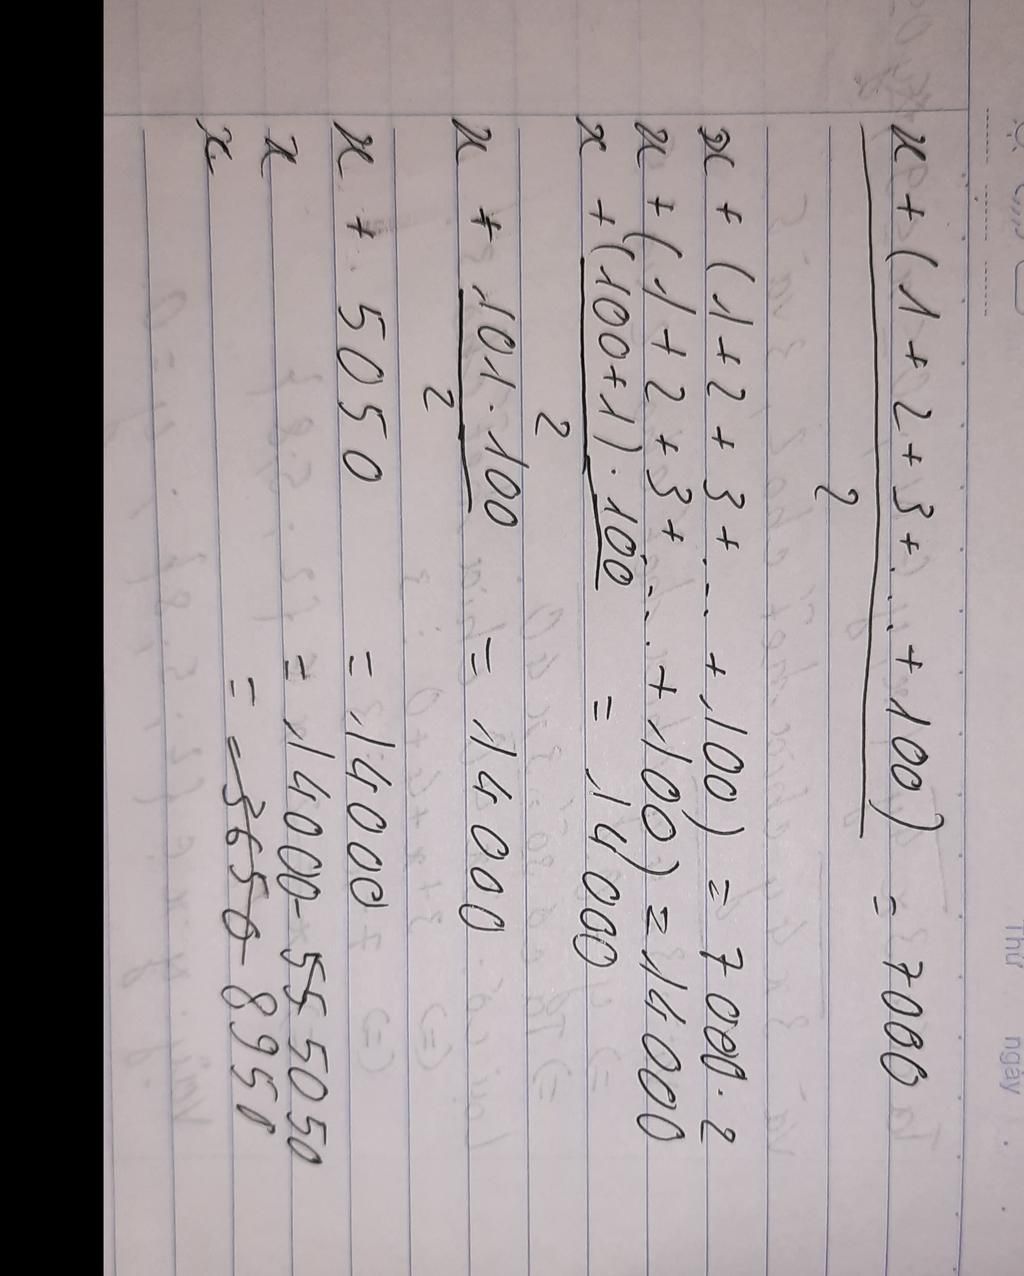 Thứ ngày
x + (1 + 2 + 3 + ... + 100) = 7000
2
x + (1 + 2 + 3 + ... + 100) = 7000 . 2
x + (1 + 2 + 3 + ... + 100) = 14000
x + (100 + 1) . 100 = 14000
2
x + 101 . 100 = 14000
2
x + 5050 = 14000
x = 14000 - 5050
x = 8950